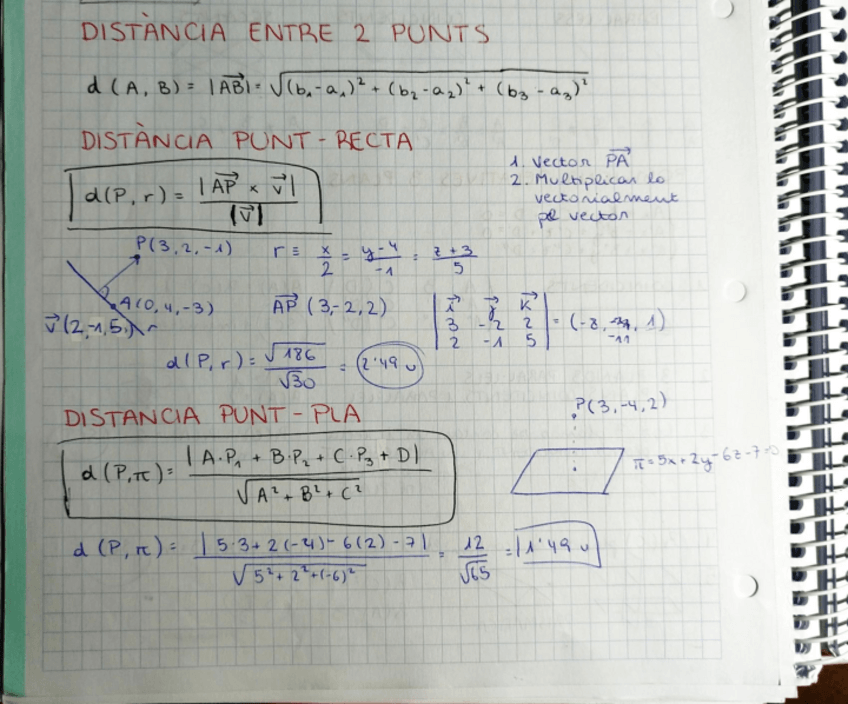 DISTÀNCIA ENTRE 2 PUNTS
d (A, B) = |AB→| = √((b₁-a₁)² + (b₂-a₂)² + (b₃-a₃)²)
DISTÀNCIA PUNT-RECTA
d(P, r) = |AP→ × v→| / |v→|
1. Vector PA→
2. Multiplicar lo
vectorialment
pel vector
P(3, 2, -1)
r ≡ x/2 = y-4/-1 = z+3/5
A(0, 4, -3)
v→(2,-1,5)
r
AP→ (3,-2,2)
| i→ j→ k→ |
| 3 -2 2 | = (-8, -11, 1)
| 2 -1 5 |
d(P, r) = √186/√30 = 2'49 u
DISTANCIA PUNT-PLA
P(3,-4,2)
d (P,π) = |A·P₁ + B·P₂ + C·P₃ + D| / √(A² + B² + C²)
π=5x+2y-6z-7=0
d (P, π) = |5·3+2(-4)-6(2)-7| / √(5²+2²+(-6)²) = 12/√65 = 1'49 u